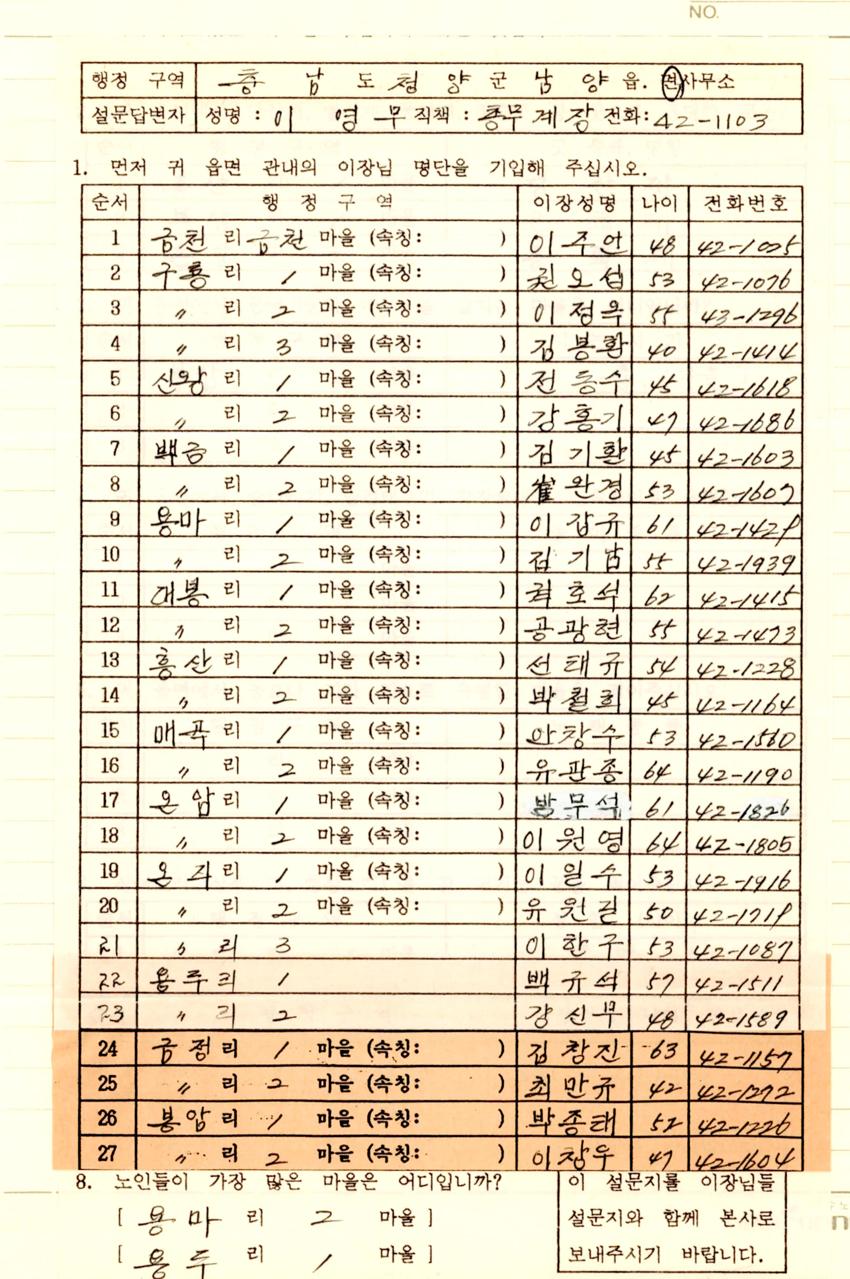 NO.
행정 구역 충 남 도 청 양 군 남 양 읍. 면사무소
설문답변자 성명 : 이 영 무 직책 : 총무계장 전화: 42-1103
1. 먼저 귀 읍면 관내의 이장님 명단을 기입해 주십시오.
순서 행 정 구 역 이장성명 나이 전화번호
1 금천 리 금천 마을 (속칭: ) 이주안 48 42-1005
2 구룡 리 1 마을 (속칭: ) 권오섭 53 42-1076
3 〃 리 2 마을 (속칭: ) 이정옥 55 43-1296
4 〃 리 3 마을 (속칭: ) 김봉환 40 42-1414
5 신왕 리 1 마을 (속칭: ) 전동수 45 42-1618
6 〃 리 2 마을 (속칭: ) 강홍기 47 42-1686
7 백금 리 1 마을 (속칭: ) 김기환 45 42-1603
8 〃 리 2 마을 (속칭: ) 崔완경 53 42-1607
9 용마 리 1 마을 (속칭: ) 이갑규 61 42-1429
10 〃 리 2 마을 (속칭: ) 김기남 55 42-1939
11 대봉 리 1 마을 (속칭: ) 호석 62 42-1415
12 〃 리 2 마을 (속칭: ) 공광현 55 42-1473
13 흥산 리 1 마을 (속칭: ) 선태규 54 42-1228
14 〃 리 2 마을 (속칭: ) 박철희 45 42-1164
15 매곡 리 1 마을 (속칭: ) 안창수 53 42-1560
16 〃 리 2 마을 (속칭: ) 유판종 64 42-1190
17 온암 리 1 마을 (속칭: ) 방무석 61 42-1826
18 〃 리 2 마을 (속칭: ) 이원영 64 42-1805
19 온직 리 1 마을 (속칭: ) 이일수 53 42-1916
20 〃 리 2 마을 (속칭: ) 유원길 50 42-1719
21 〃 리 3 이한구 53 42-1087
22 용두리 1 백규석 57 42-1511
23 〃 리 2 강신부 48 42-1589
24 금정 리 1 마을 (속칭: ) 김창진 63 42-1157
25 〃 리 2 마을 (속칭: ) 최만규 42 42-1272
26 봉암 리 1 마을 (속칭: ) 박종태 52 42-1226
27 〃 리 2 마을 (속칭: ) 이창우 47 42-1604
8. 노인들이 가장 많은 마을은 어디입니까?
[ 용마 리 2 마을 ]
[ 용두 리 1 마을 ]
이 설문지를 이장님들
설문지와 함께 본사로
보내주시기 바랍니다.